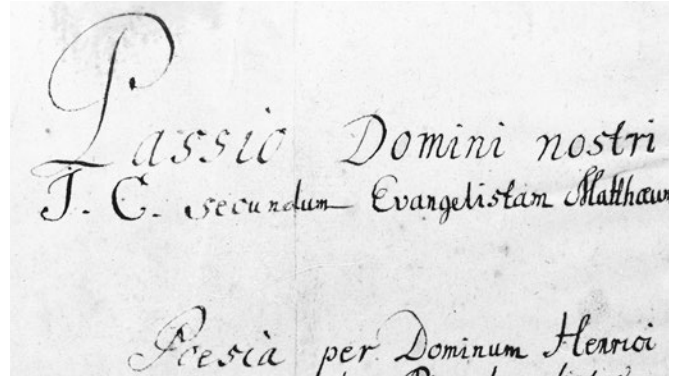 Passio Domini nostri
J. C. secundum Evangelistam Matthæum
Poesia per Dominum Henrici